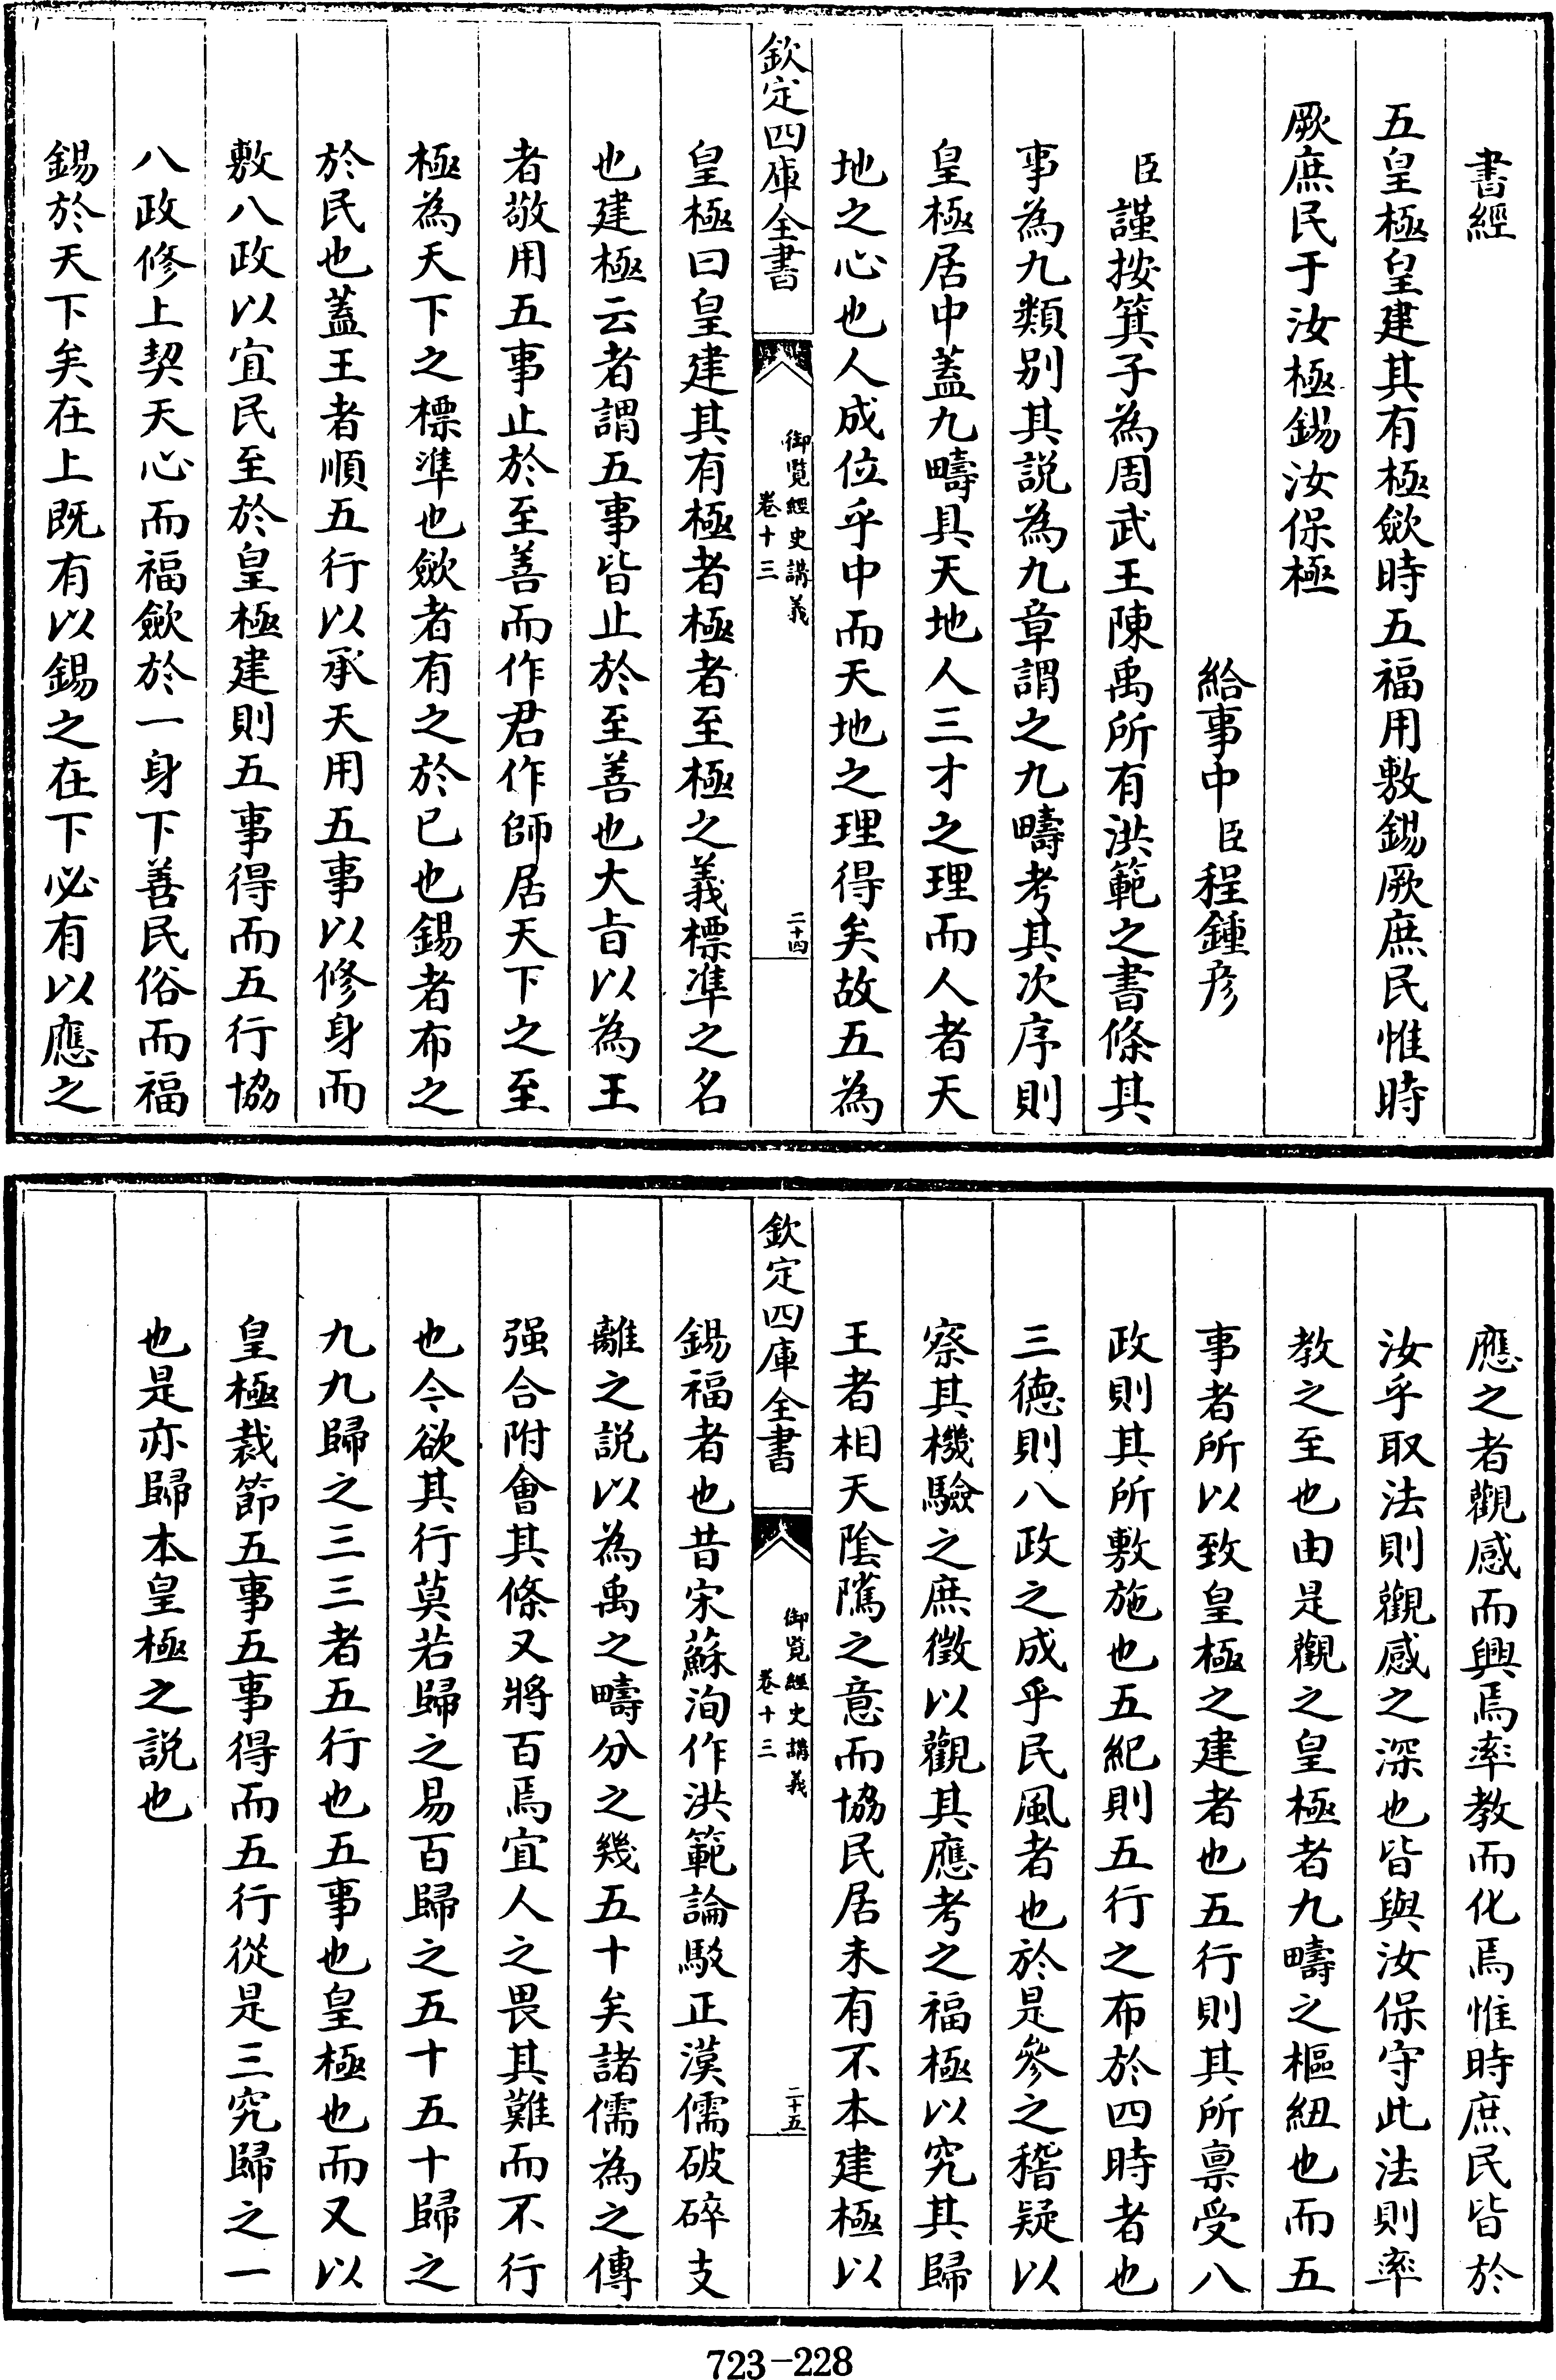 書經
五皇極皇建其有極斂時五福用敷錫厥庶民惟時
厥庶民于汝極錫汝保極
給事中臣程鍾彦
臣謹按箕子為周武王陳禹所有洪範之書條其
事為九類别其説為九章謂之九疇考其次序則
皇極居中蓋九疇具天地人三才之理而人者天
地之心也人成位乎中而天地之理得矣故五為
欽定四庫全書
御覧經史講義
卷十三
二十四
皇極曰皇建其有極者極者至極之義標準之名
也建極云者謂五事皆止於至善也大旨以為王
者敬用五事止於至善而作君作師居天下之至
極為天下之標準也斂者有之於已也錫者布之
於民也蓋王者順五行以承天用五事以修身而
敷八政以宜民至於皇極建則五事得而五行協
八政修上契天心而福斂於一身下善民俗而福
錫於天下矣在上既有以錫之在下必有以應之
應之者觀感而興焉率教而化焉惟時庶民皆於
汝乎取法則觀感之深也皆與汝保守此法則率
教之至也由是觀之皇極者九疇之樞紐也而五
事者所以致皇極之建者也五行則其所禀受八
政則其所敷施也五紀則五行之布於四時者也
三德則八政之成乎民風者也於是參之稽疑以
察其機驗之庶徵以觀其應考之福極以究其歸
王者相天陰隲之意而協民居未有不本建極以
欽定四庫全書
御覧經史講義
卷十三
二十五
錫福者也昔宋蘇洵作洪範論駁正漢儒破碎支
離之説以為禹之疇分之幾五十矣諸儒為之傳
强合附會其條又將百焉宜人之畏其難而不行
也今欲其行莫若歸之易百歸之五十五十歸之
九九歸之三三者五行也五事也皇極也而又以
皇極裁節五事五事得而五行從是三究歸之一
也是亦歸本皇極之説也
723-228